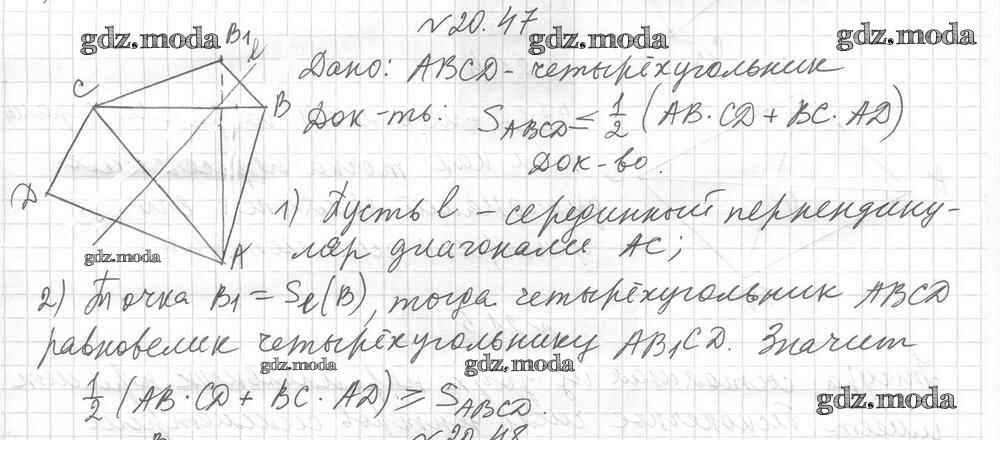 №20.47
gdz.moda B₁ l gdz.moda gdz.moda
Дано: ABCD - четырёхугольник
C B
Док-ть: S_ABCD ≤ 1/2 (AB·CD + BC·AD)
Док-во.
D
1) Пусть l - серединный перпендику-
gdz.moda A
ляр диагонали AC;
2) Точка B₁ = S_l(B), тогда четырёхугольник ABCD
равновелик четырёхугольнику AB₁CD. Значит
gdz.moda gdz.moda
1/2 (AB·CD + BC·AD) ≥ S_ABCD.
gdz.moda
B №20.48